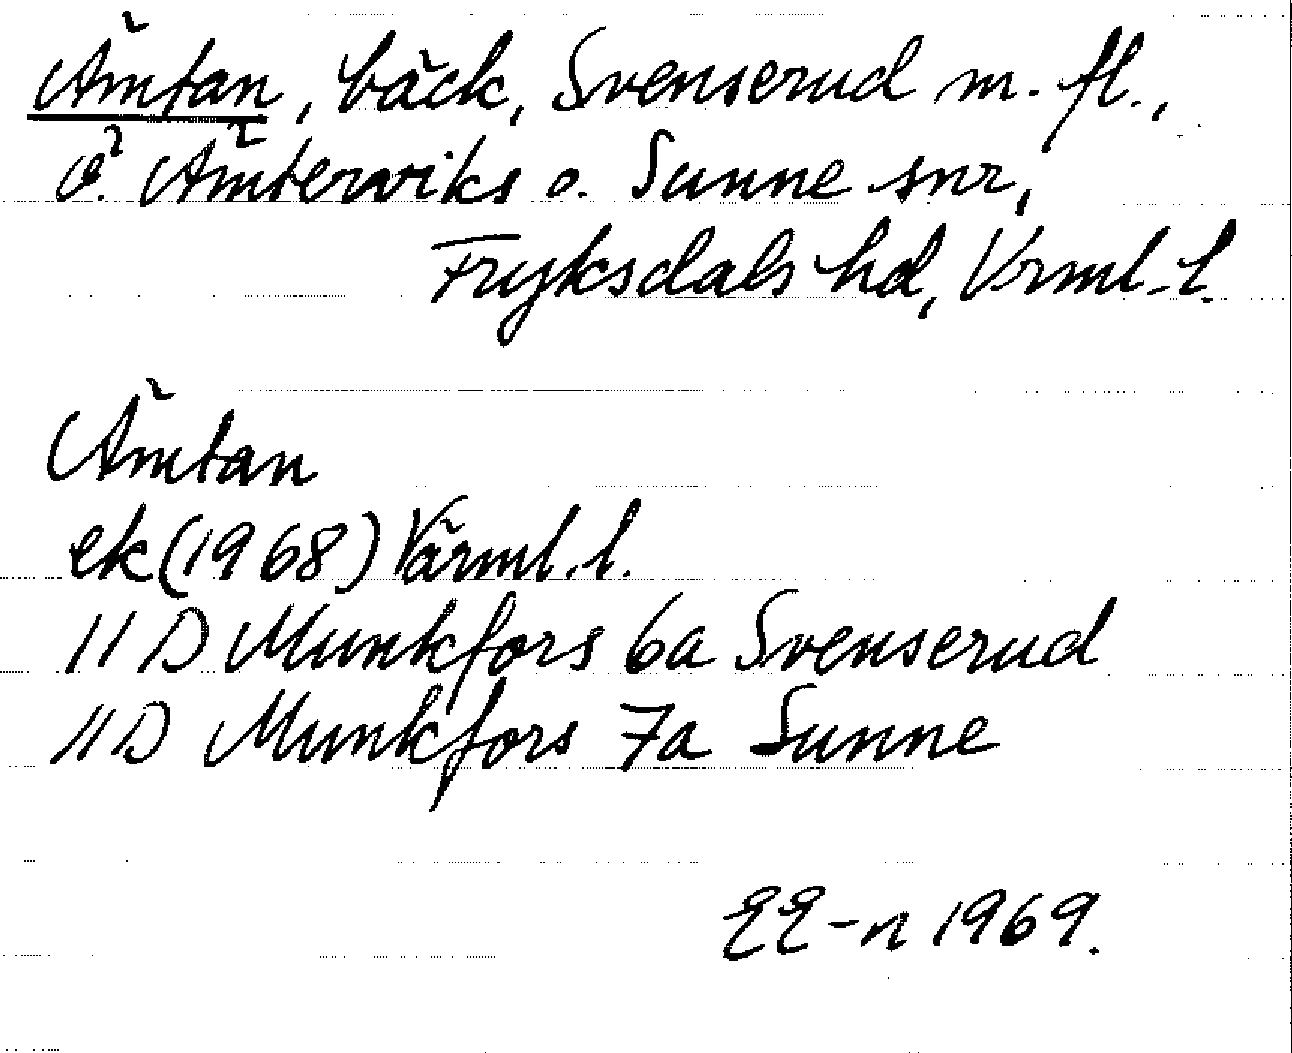 Ämtan, bäck, Svenserud m. fl.,
Ö. Ämterviks o. Sunne snr,
Fryksdals hd, Vrml. l.
Ämtan
ek (1968) Värml. l.
11 D Munkfors 6a Svenserud
11 D Munkfors 7a Sunne
EE-n 1969.